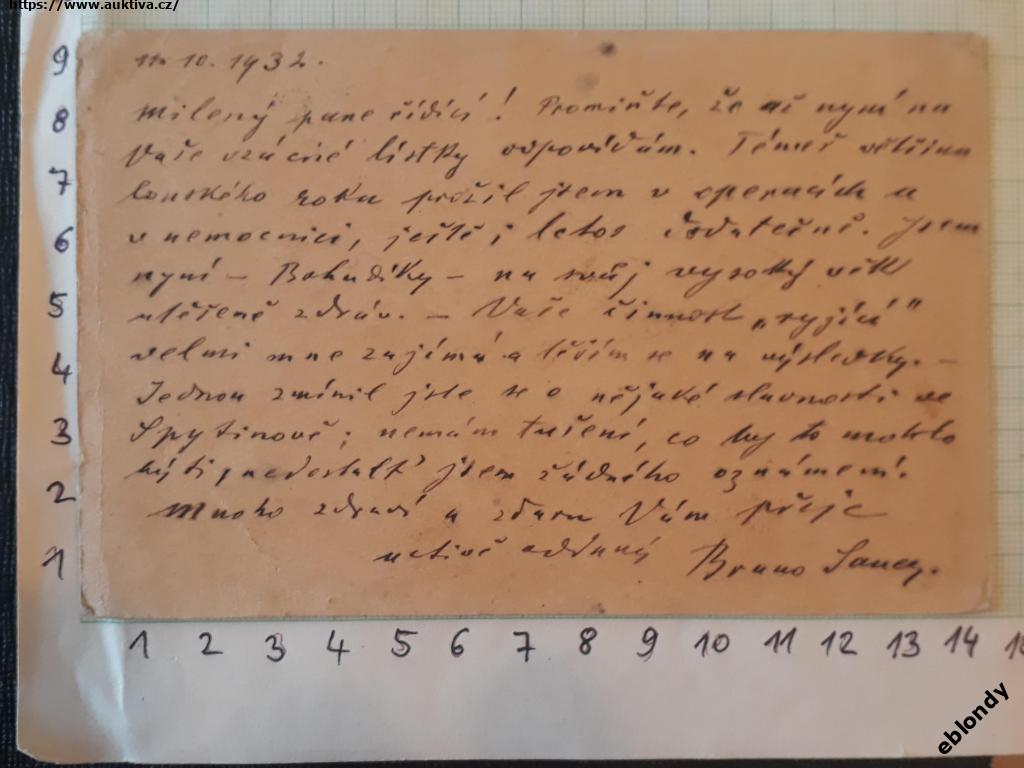 https://www.auktiva.cz/
11. 10. 1932.
Milený pane řídící! Promiňte, že až nyní na
Vaše vzácné lístky odpovídám. Téměř většinu
lonského roku prožil jsem v operacích a
v nemocnici, ještě i letos částečně. Jsem
nyní – Bohudíky – na svůj vysoký věk
utěšeně zdráv. – Vaše činnost „ryjící"
velmi mne zajímá a těším se na výsledky. –
Jednou zmínil jste se o nějaké slavnosti ve
Spytinově; nemám tušení, co by to mohlo
býti, nedostalť jsem žádného oznámení.
Mnoho zdraví a zdaru Vám přeje
uctivě oddaný Bruno
9
8
7
6
5
4
3
2
1
1 2 3 4 5 6 7 8 9 10 11 12 13 14
eblondy